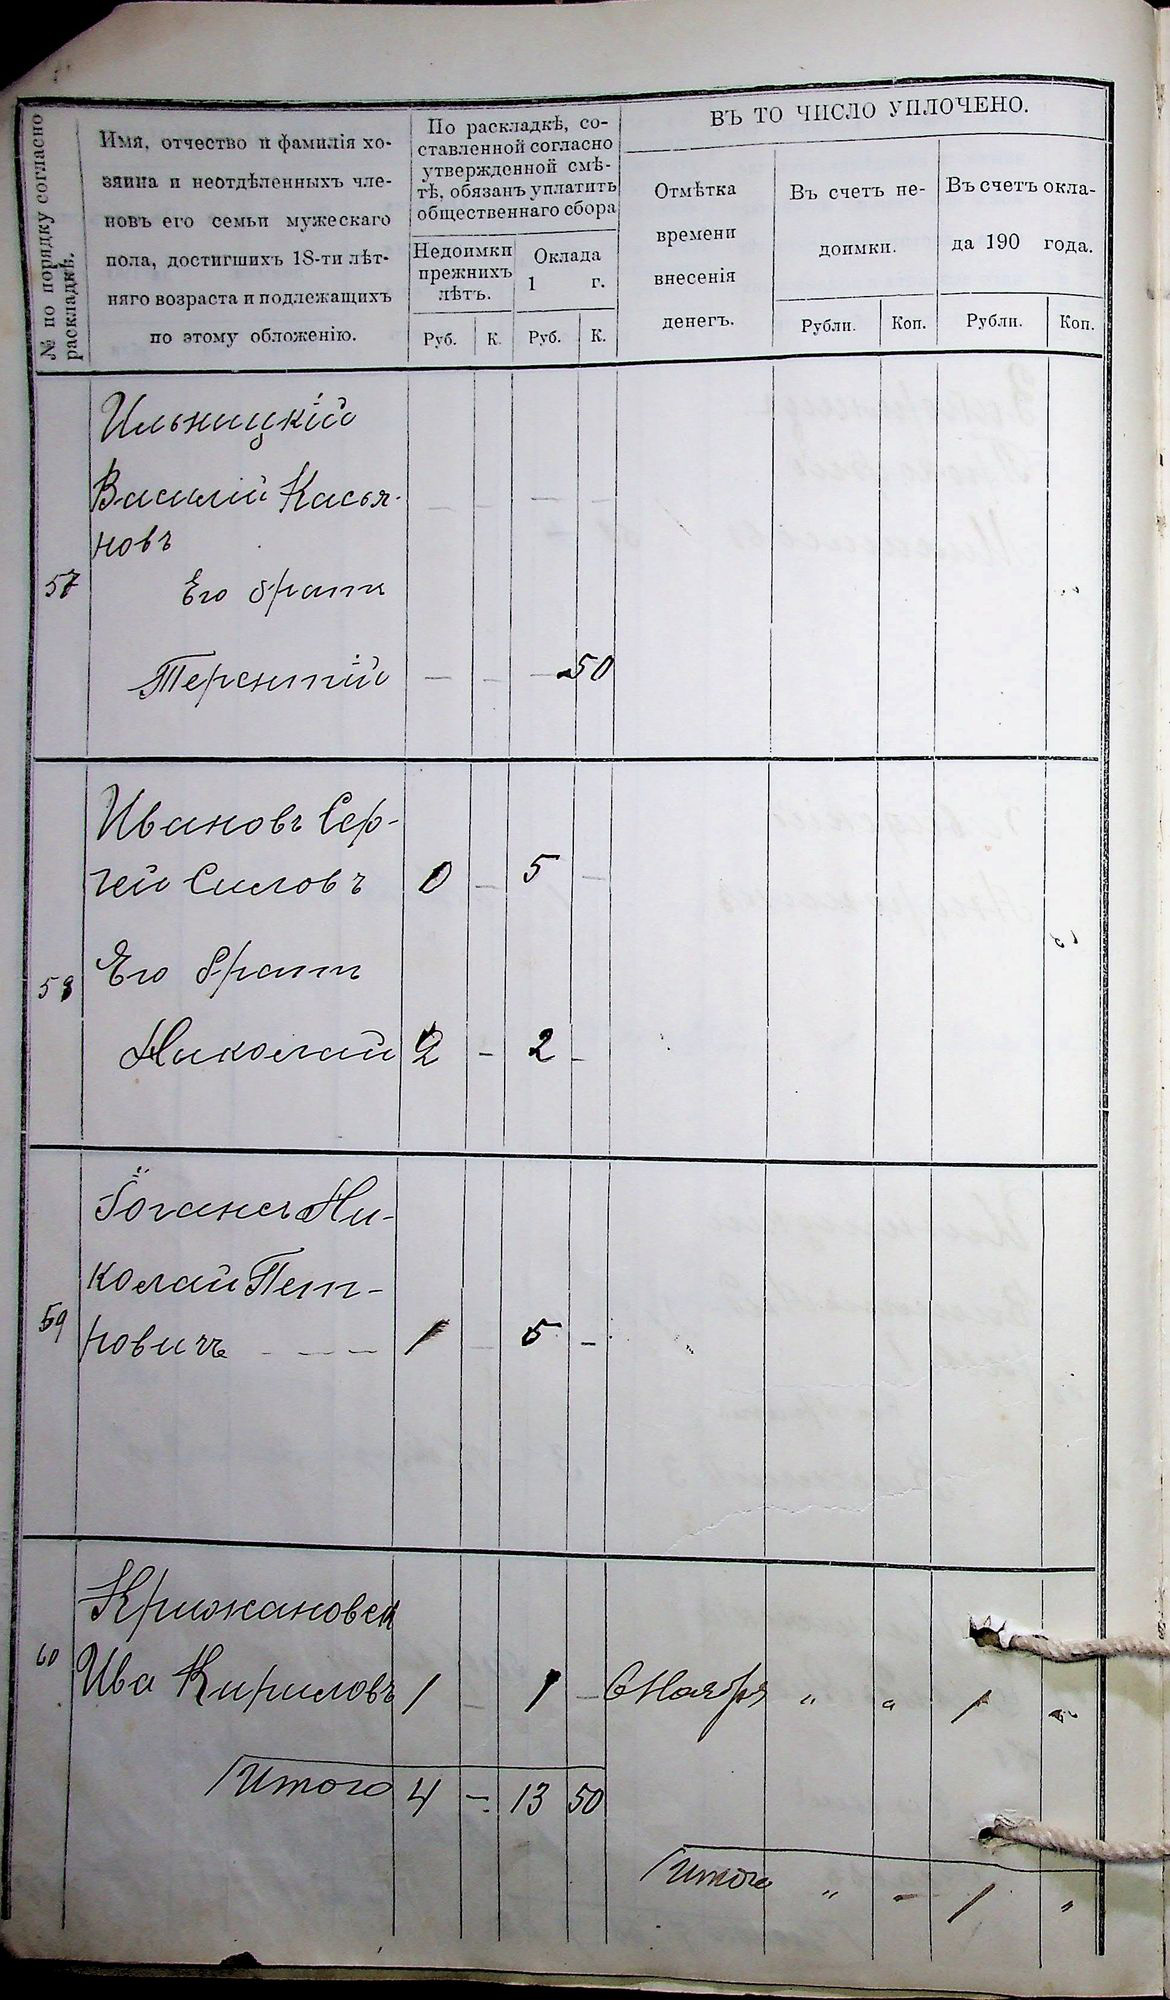 № по порядку согласно
раскладкѣ.
Имя, отчество и фамилія хо-
зяина и неотдѣленныхъ чле-
новъ его семьи мужескаго
пола, достигшихъ 18-ти лѣт-
няго возраста и подлежащихъ
по этому обложенію.
По раскладкѣ, со-
ставленной согласно
утвержденной смѣ-
тѣ, обязанъ уплатить
общественнаго сбора
Недоимки
прежнихъ
лѣтъ.
Оклада
1 г.
Руб. К. Руб. К.
ВЪ ТО ЧИСЛО УПЛОЧЕНО.
Отмѣтка
времени
внесенія
денегъ.
Въ счетъ не-
доимки.
Въ счетъ окла-
да 190 года.
Рубли. Коп. Рубли. Коп.
Ильницкій
Василій Касья-
новъ
57 Его братъ
Терентій — — — 50
Ивановъ Сер-
гей Силовъ 0 — 5 —
58 Его братъ
Николай 2 — 2 —
Іоганъ Ни-
колай Пет-
59 ровичъ — — — 1 — 5 —
Крижановск
60 Ива Кириловъ 1 — 1 — 6 Ноября " " 1 "
Итого 4 — 13 50
Итого " - 1 "